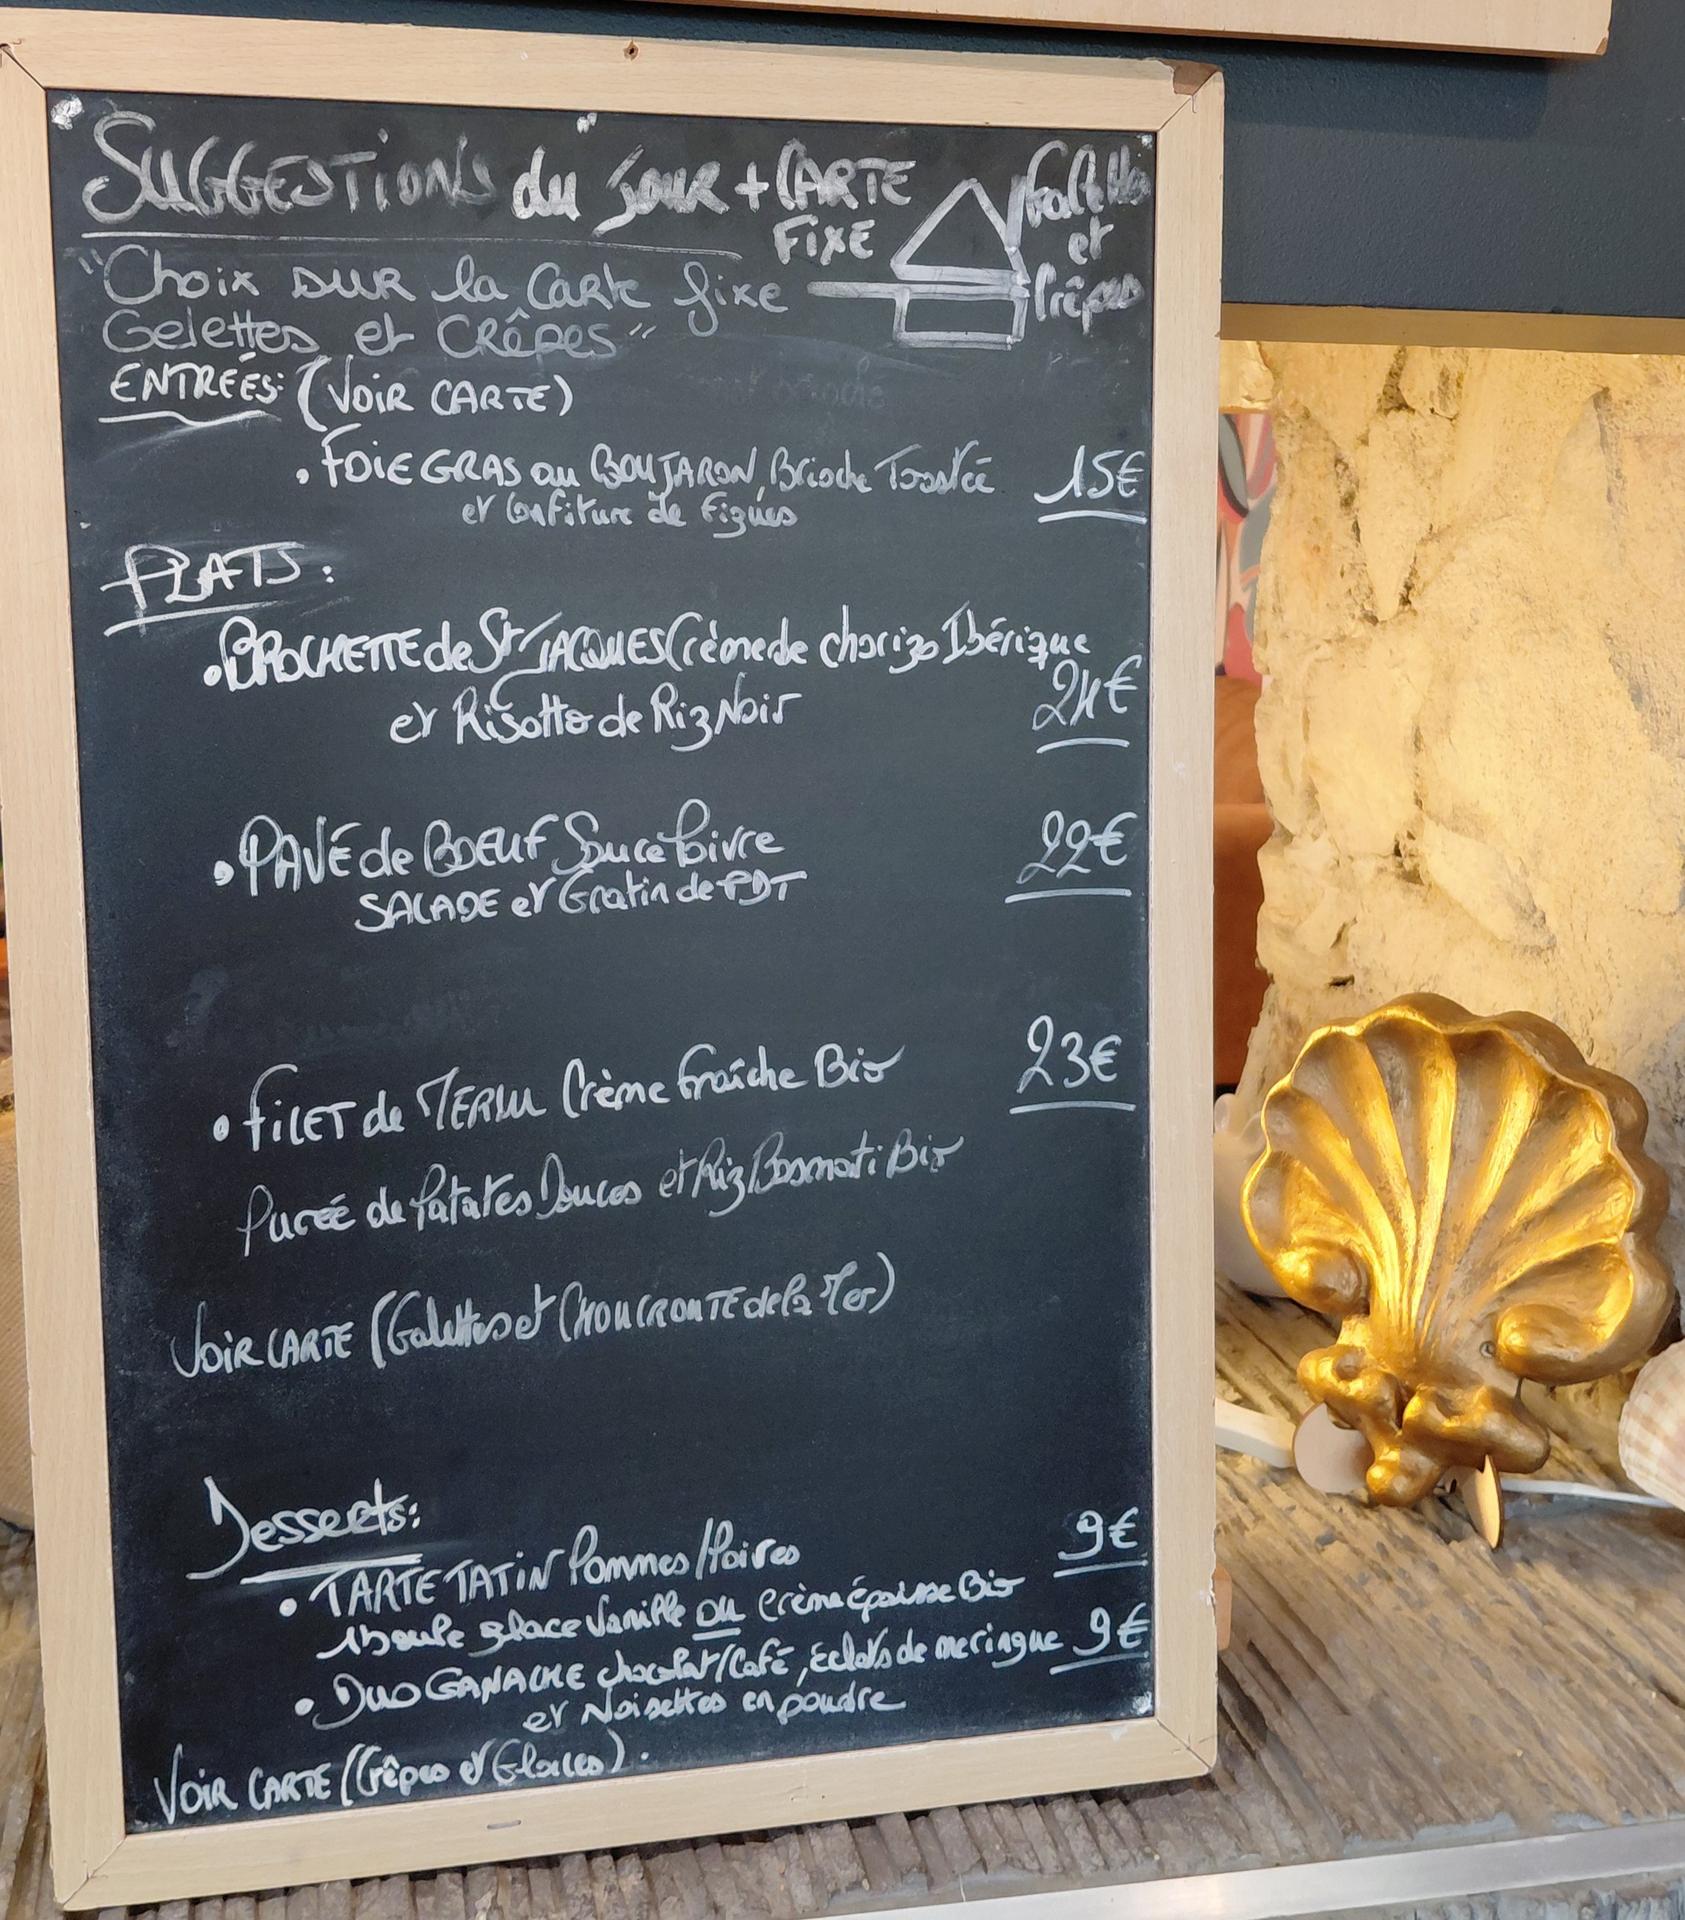 "SUGGESTIONS du jour" + CARTE
FIXE
Galettes
et
Crêpes
"Choix SUR la Carte fixe
Gelettes et CRÊPES"
ENTRÉES: (VOIR CARTE)
• FOIE GRAS au BOUJARON, Brioche Toastée 15€
et Confiture de Figues
PLATS:
• BROCHETTE de St JACQUES Crème de chorizo Ibérique
et Risotto de Riz Noir 24€
• PAVÉ de BOEUF Sauce Poivre 22€
SALADE et Gratin de PDT
• FILET de MERLU Crème fraîche Bio 23€
Purée de Patates Douces et Riz Basmati Bio
VOIR CARTE (Galettes et CHOUCROUTE de la Mer)
Desserts:
• TARTE TATIN Pommes/Poires 9€
1 boule glace Vanille ou crème épaisse Bio
• DUO GANACHE chocolat/Café, éclats de meringue 9€
et Noisettes en poudre
VOIR CARTE (Crêpes et Glaces).